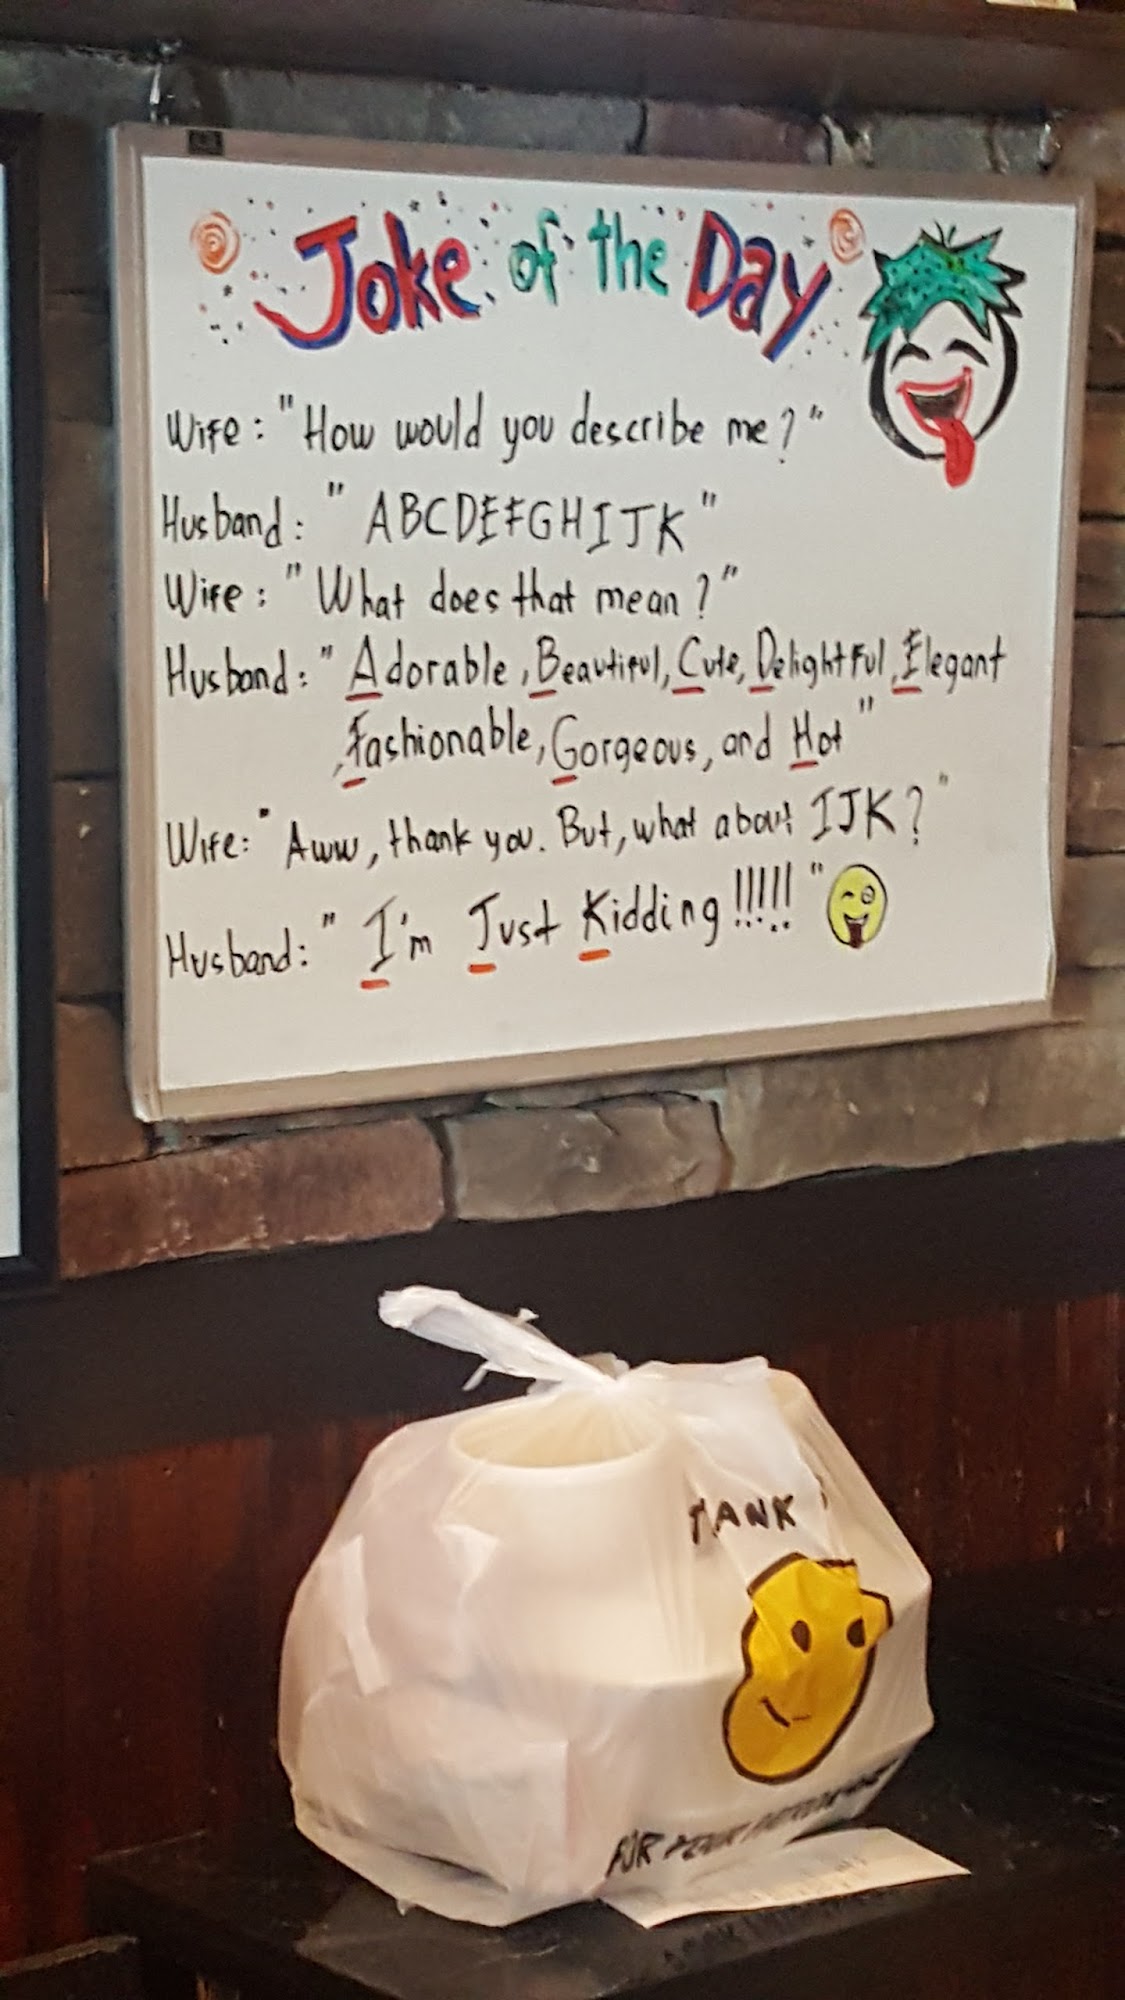 Joke of the Day
Wife: "How would you describe me?"
Husband: "ABCDEFGHIJK"
Wife: "What does that mean?"
Husband: "Adorable, Beautiful, Cute, Delightful, Elegant
, Fashionable, Gorgeous, and Hot"
Wife: "Aww, thank you. But, what about IJK?"
Husband: "I'm Just Kidding!!!!!"
FOR YOUR